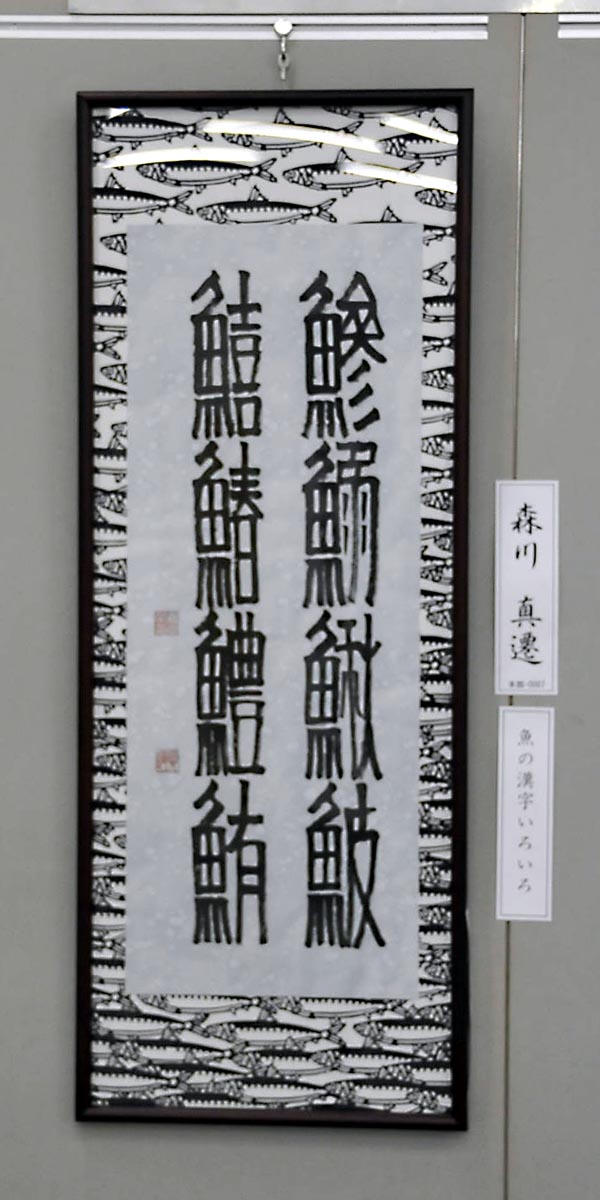 鯵鰯鰍鮍
鱚鰆鱧鮪
森川 真遷
魚の漢字いろいろ